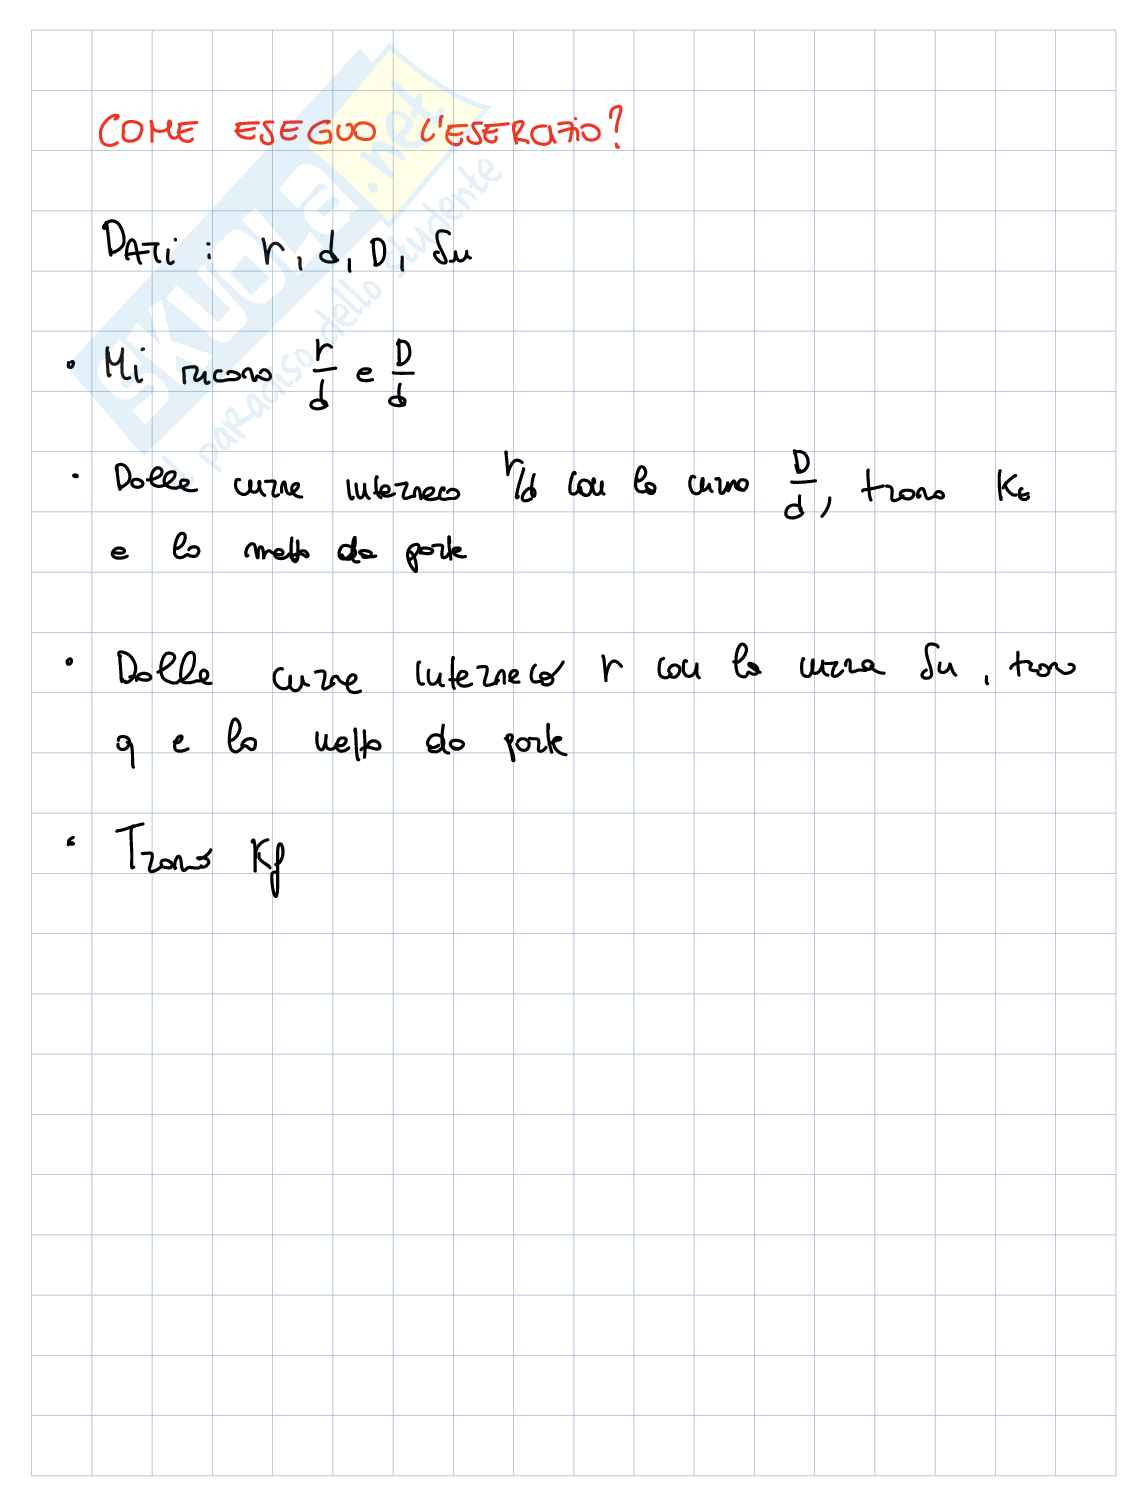 COME ESEGUO L'ESERCIZIO?
DATi : r, d, D, Su
• Mi ricavo r/d e D/d
• Dalle curve interseco r/d con la curva D/d, trovo Kt
e lo metto da parte
• Dalle curve interseco r con la curva Su, trovo
q e lo metto da parte
• Trovo Kf
SKUOLA.net
il paradiso dello studente